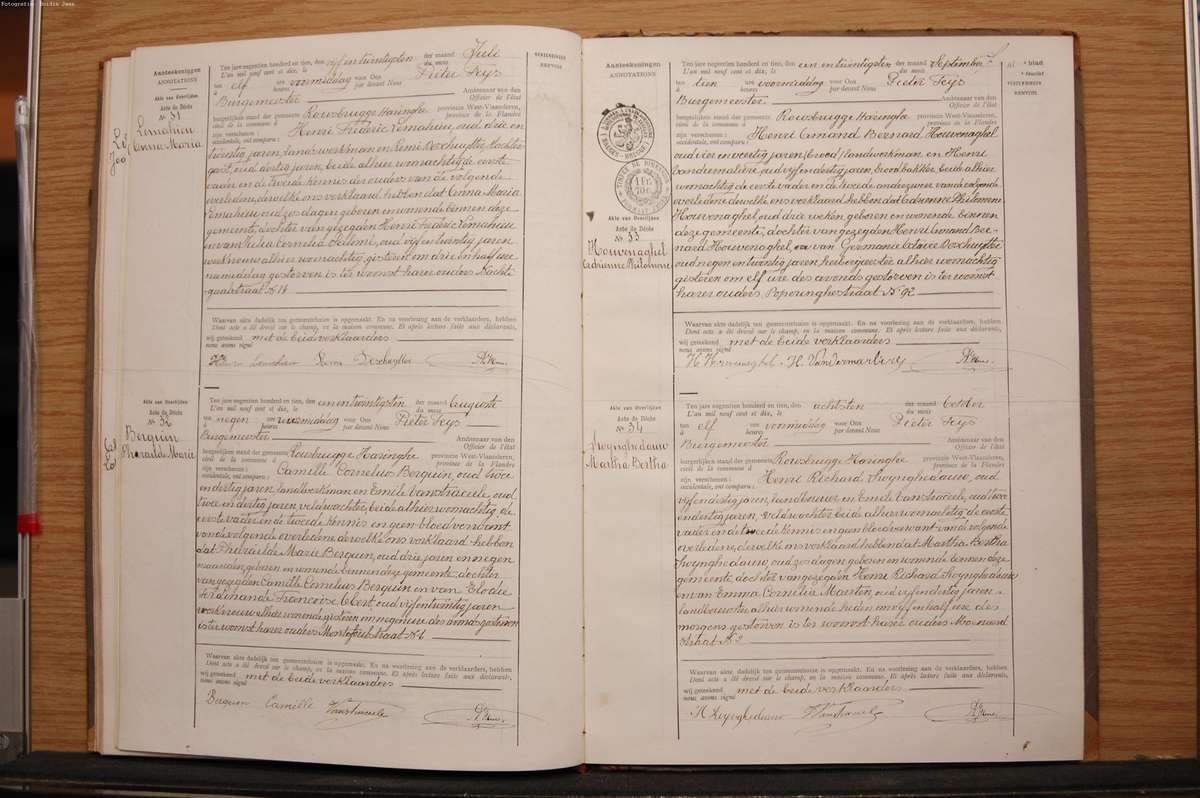 Fotografie: Boidin Jean
Aanteekeningen
ANNOTATIONS
Akte van Overlijden
Acte de Décès
№ 31
Lemahieu
Anna Maria
Ten jare negentien honderd en tien, den vijfentwintigsten der maand Juli
L'an mil neuf cent et dix, le du mois
ten elf ure voormiddag voor Ons Pieter Feys
à heures par devant Nous
Burgemeester Ambtenaar van den
Officier de l'état
burgerlijken stand der gemeente Rousbrugge Haringhe provincie West-Vlaanderen,
civil de la commune à province de la Flandre
zijn verschenen: Henri Frederic Lemahieu, oud drie en
occidentale, ont comparu:
twintig jaren, landwerkman en Remi Dexhuytter
oud dertig jaren, beide alhier woonachtig, de eerste
vader en de tweede kennis der ouders van de volgende
overledene, dewelke ons verklaard hebben dat Anna Maria
Lemahieu oud zes dagen geboren en wonende binnen deze
gemeente, dochter van gezegden Henri Frederic Lemahieu
en van Julia Cornelia oud vijf en twintig jaren
werkvrouw alhier woonachtig, gisteren om drie en half ure
namiddag gestorven is ter woonst harer ouders Nachte
gaalstraat № 14
Waarvan akte dadelijk ten gemeentehuize is opgemaakt. En na voorlezing aan de verklaarders, hebben
Dont acte a été dressé sur le champ, en la maison commune. Et après lecture faite aux déclarants,
wij geteekend met de beide verklaarders
nous avons signé
Akte van Overlijden
Acte de Décès
№ 32
Berquin
Pharaïlde Marie
Ten jare negentien honderd en tien, den eenentwintigsten der maand Auguste
L'an mil neuf cent et dix, le du mois
ten negen ure voormiddag voor Ons Pieter Feys
à heures par devant Nous
Burgemeester Ambtenaar van den
Officier de l'état
burgerlijken stand der gemeente Rousbrugge Haringhe provincie West-Vlaanderen,
civil de la commune à province de la Flandre
zijn verschenen: Camille Cornelius Berquin, oud twee
occidentale, ont comparu:
en dertig jaren, landwerkman en Emile Vanstraceele oud
twee en dertig jaren, veldwachter, beide alhier woonachtig, de
eerste vader en de tweede kennis en geen bloedverwant
van de volgende overledene, dewelke ons verklaard hebben
dat Pharaïlde Marie Berquin, oud drie jaren en negen
maanden, geboren en wonende binnen deze gemeente, dochter
van gezegden Camille Cornelius Berquin en van Elodie
Ferdinande Francoise oud vijfentwintig jaren
werkvrouw alhier wonende gisteren om negen ure des avonds gestorven
is ter woonst harer ouders № 6
Waarvan akte dadelijk ten gemeentehuize is opgemaakt. En na voorlezing aan de verklaarders, hebben
Dont acte a été dressé sur le champ, en la maison commune. Et après lecture faite aux déclarants,
wij geteekend met de beide verklaarders
nous avons signé
Berquin Camille Vanstraceele
Aanteekeningen
ANNOTATIONS
Akte van Overlijden
Acte de Décès
№ 33
Houvenaghel
Adrienne Philomene
Ten jare negentien honderd en tien, den een en twintigsten der maand September
L'an mil neuf cent et dix, le du mois
ten tien ure voormiddag voor Ons Pieter Feys
à heures par devant Nous
Burgemeester Ambtenaar van den
Officier de l'état
burgerlijken stand der gemeente Rousbrugge Haringhe provincie West-Vlaanderen,
civil de la commune à province de la Flandre
zijn verschenen: Henri Armand Bernard Houvenaghel
occidentale, ont comparu:
oud vier en veertig jaren, landwerkman en Henri
oud vijfendertig jaren, broodbakker beide alhier
woonachtig de eerste vader en de tweede van de volgende
overledene dewelke ons verklaard hebben dat Adrienne Philomene
Houvenaghel, oud drie weken, geboren en wonende binnen
deze gemeente, dochter van gezegden Henri Armand Ber-
nard Houvenaghel, en van Germanie Claire Dexhuytter
oud negen en twintig jaren, herbergierster alhier woonachtig
gisteren om elf ure des avonds gestorven is ter woonst
harer ouders, Poperinghestraat № 92
Waarvan akte dadelijk ten gemeentehuize is opgemaakt. En na voorlezing aan de verklaarders, hebben
Dont acte a été dressé sur le champ, en la maison commune. Et après lecture faite aux déclarants,
wij geteekend met de beide verklaarders
nous avons signé
Akte van Overlijden
Acte de Décès
№ 34
Swynghedauw
Martha Bertha
Ten jare negentien honderd en tien, den achtsten der maand October
L'an mil neuf cent et dix, le du mois
ten elf ure voormiddag voor Ons Pieter Feys
à heures par devant Nous
Burgemeester Ambtenaar van den
Officier de l'état
burgerlijken stand der gemeente Rousbrugge Haringhe provincie West-Vlaanderen,
civil de la commune à province de la Flandre
zijn verschenen: Henri Richard Swynghedauw, oud
occidentale, ont comparu:
vijfendertig jaren, landbouwer en Emile Vanstraceele, oud twee
endertig jaren, veldwachter beide alhier woonachtig de eerste
vader en de tweede kennis en geen bloedverwant van de volgende
overledene, dewelke ons verklaard hebben dat Martha Bertha
Swynghedauw, oud zes dagen geboren en wonende binnen deze
gemeente, dochter van gezegden Henri Richard Swynghedauw
en van Emma Cornelia Maerten, oud vijfendertig jaren
landbouwster alhier wonende heden om vijf en half ure des
morgens gestorven is ter woonst harer ouders
straat № 2
Waarvan akte dadelijk ten gemeentehuize is opgemaakt. En na voorlezing aan de verklaarders, hebben
Dont acte a été dressé sur le champ, en la maison commune. Et après lecture faite aux déclarants,
wij geteekend met de beide verklaarders
nous avons signé
H Swynghedauw Vanstraceele